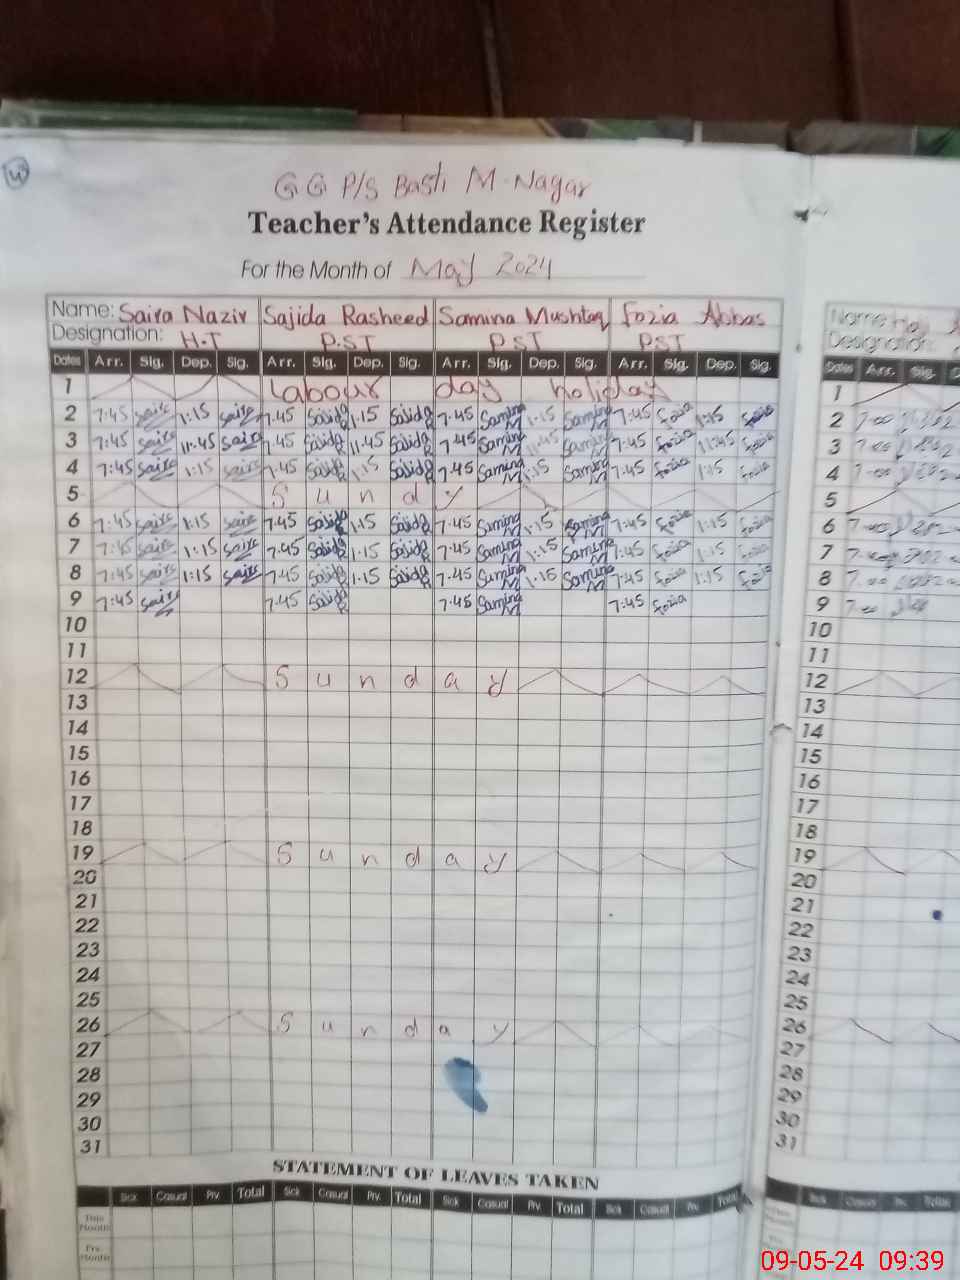 G G P/S Basti M. Nagar
Teacher's Attendance Register
For the Month of May 2024
Name: Saira Nazir Sajida Rasheed Samina Mushtaq Fozia Abbas Name
Designation: H.T P.ST P.ST P.ST Designation:
Dates Arr. Sig. Dep. Sig. Arr. Sig. Dep. Sig. Arr. Sig. Dep. Sig. Arr. Sig. Dep. Sig. Dates Arr. Sig.
1 Labour day holiday 1
2 7:45 Saira 1:15 Saira 7:45 Sajida 1:15 Sajida 7:45 Samina M 1:15 Samina M 7:45 Fozia 1:15 Fozia 2 7:00
3 7:45 Saira 11:45 Saira 7:45 Sajida 11:45 Sajida 7:45 Samina M 11:45 Samina M 7:45 Fozia 11:45 Fozia 3 7:00
4 7:45 Saira 1:15 Saira 7:45 Sajida 1:15 Sajida 7:45 Samina M 1:15 Samina M 7:45 Fozia 1:15 Fozia 4 7:00
5 Sunday 5
6 7:45 Saira 1:15 Saira 7:45 Sajida 1:15 Sajida 7:45 Samina M 1:15 Samina M 7:45 Fozia 1:15 Fozia 6 7:00
7 7:45 Saira 1:15 Saira 7:45 Sajida 1:15 Sajida 7:45 Samina M 1:15 Samina M 7:45 Fozia 1:15 Fozia 7 7:00
8 7:45 Saira 1:15 Saira 7:45 Sajida 1:15 Sajida 7:45 Samina M 1:15 Samina M 7:45 Fozia 1:15 Fozia 8 7:00
9 7:45 Saira 7:45 Sajida 7:45 Samina M 7:45 Fozia 9 7:00
10 10
11 11
12 Sunday 12
13 13
14 14
15 15
16 16
17 17
18 18
19 Sunday 19
20 20
21 21
22 22
23 23
24 24
25 25
26 Sunday 26
27 27
28 28
29 29
30 30
31 31
STATEMENT OF LEAVES TAKEN
Sick Casual Prv. Total Sick Casual Prv. Total Sick Casual Prv. Total Sick Casual Prv. Total Sick Casual Prv. Total
This Month
Prv. Month
09-05-24 09:39